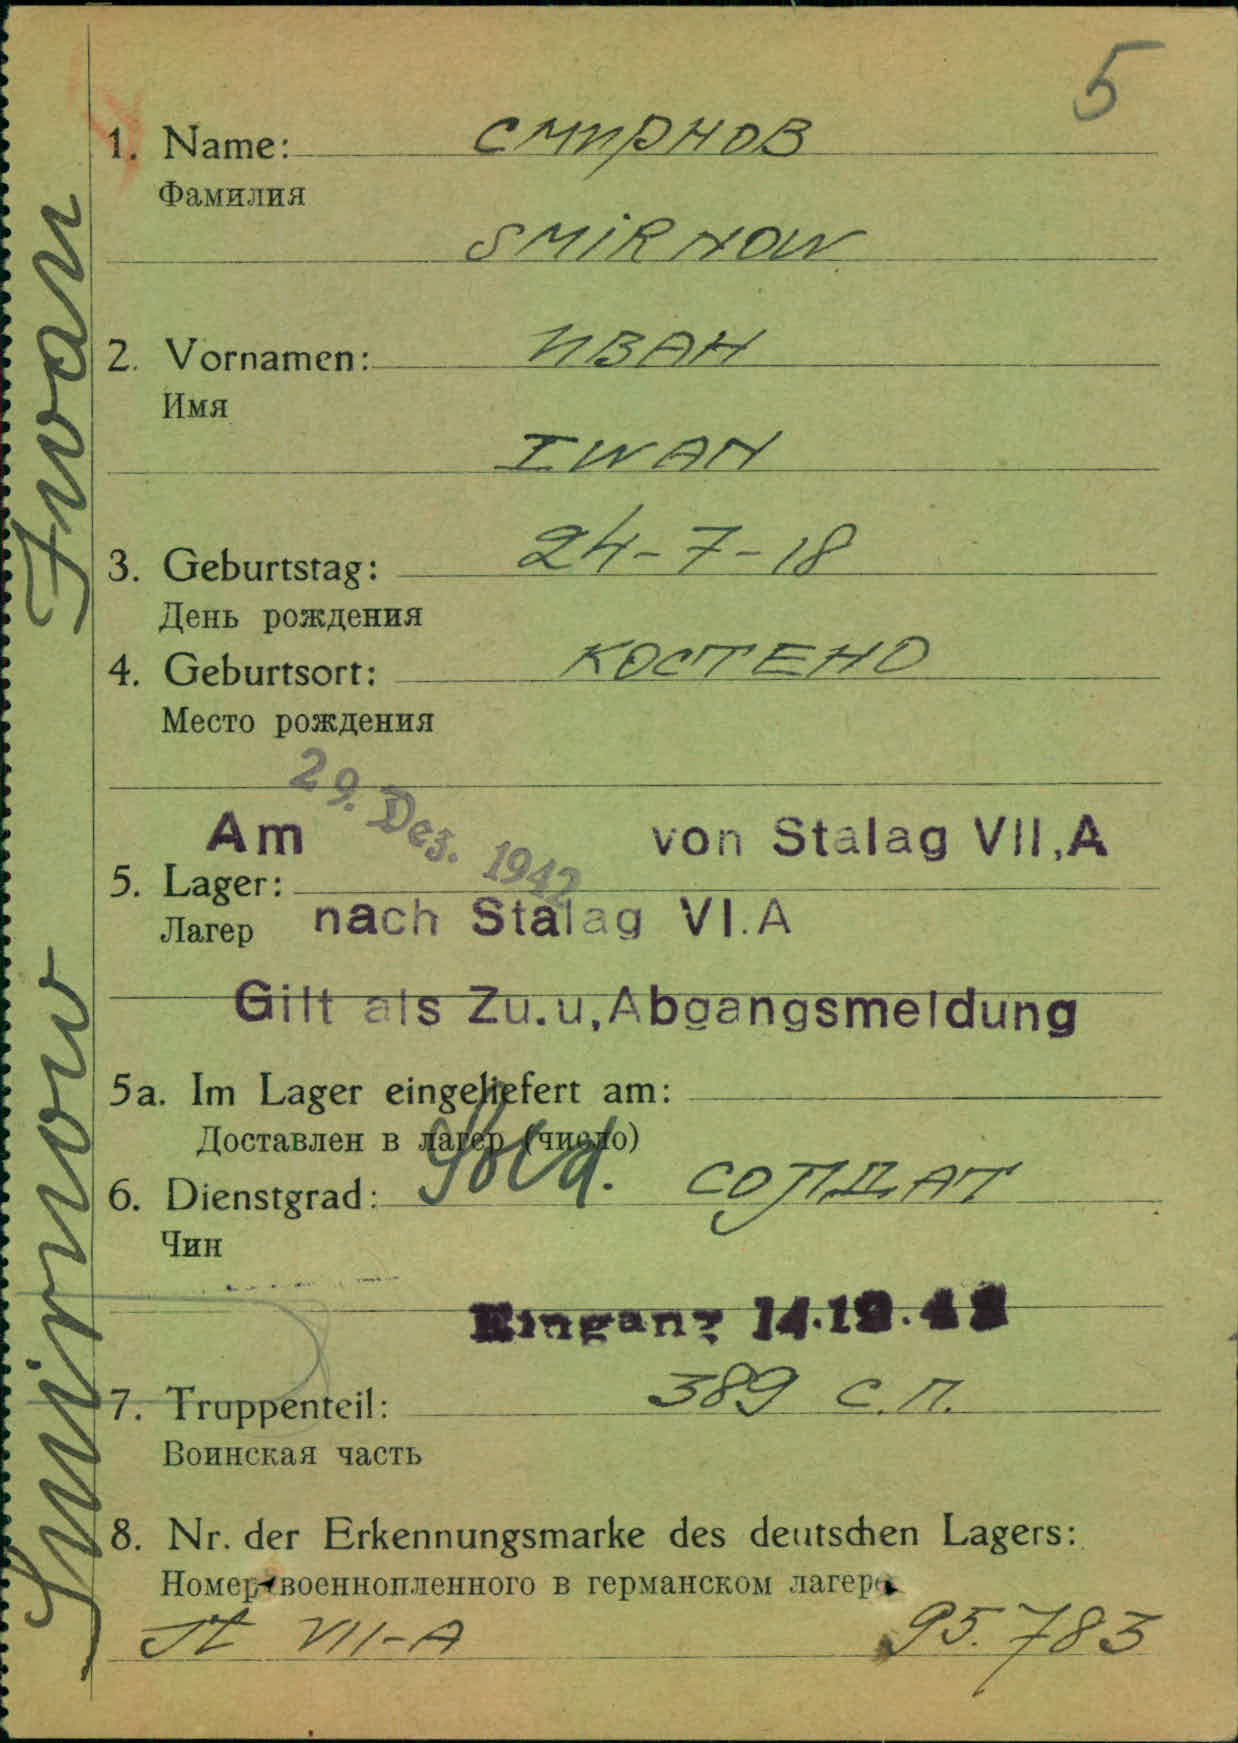 5
1. Name: СМИРНОВ
Фамилия
SMIRNOW
2. Vornamen: ИВАН
Имя
IWAN
3. Geburtstag: 24-7-18
День рождения
4. Geburtsort: КОСТЕНО
Место рождения
29. Dez. 1942
Am von Stalag VII,A
5. Lager:
Лагер nach Stalag VI.A
Gilt als Zu.u,Abgangsmeldung
5a. Im Lager eingeliefert am:
Доставлен в лагер (число)
6. Dienstgrad: Sold. СОЛДАТ
Чин
Eingang 14.12.42
7. Truppenteil: 389 С.П.
Воинская часть
8. Nr. der Erkennungsmarke des deutschen Lagers:
Номер военнопленного в германском лагере
St VII-A 95.783
Smirnow Iwan